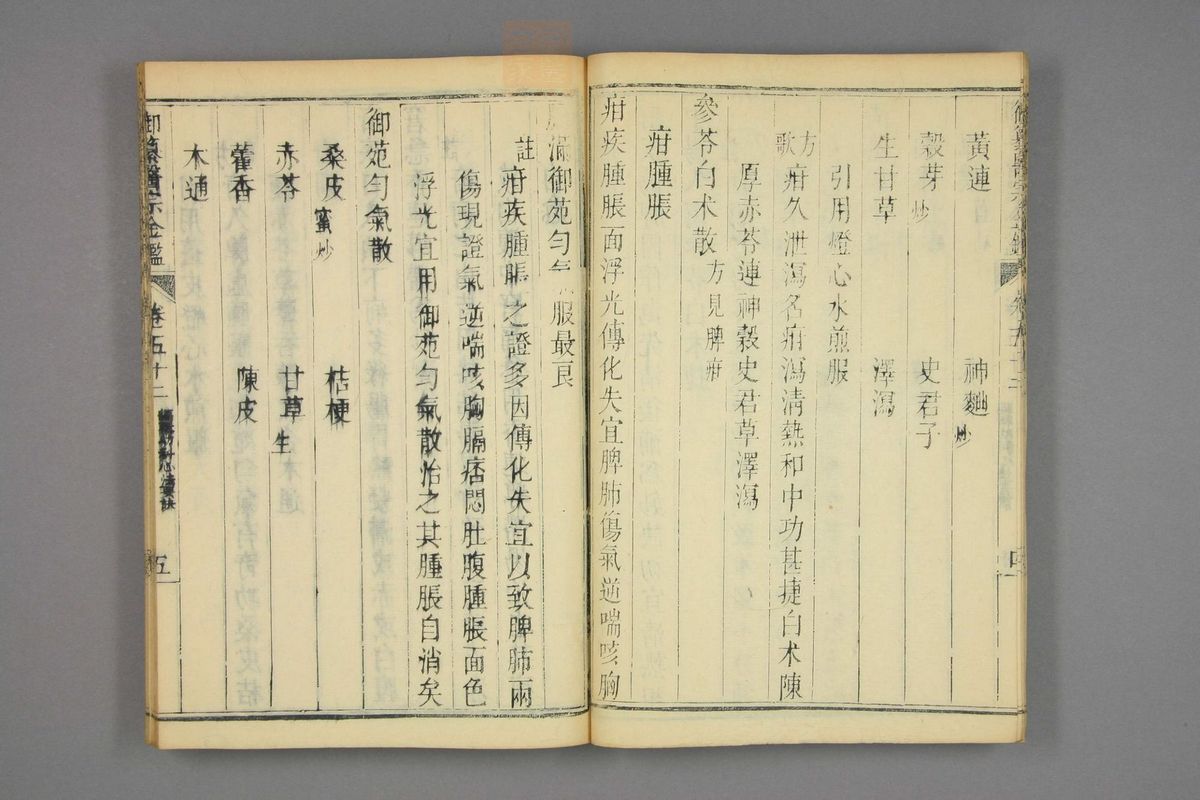 黃連 神麯炒
穀芽炒 史君子
生甘草 澤瀉
引用燈心水煎服
方歌 疳久泄瀉名疳瀉清熱和中功甚捷白术陳
厚赤苓連神穀史君草澤瀉
參苓白术散方見脾疳
疳腫脹
疳疾腫脹面浮光傳化失宜脾肺傷氣逆喘咳胸
滿御苑勻 服最良
註 疳疾腫脹之證多因傳化失宜以致脾肺兩
傷現證氣逆喘咳胸膈痞悶肚腹腫脹面色
浮光宜用御苑勻氣散治之其腫脹自消矣
御苑勻氣散
桑皮蜜炒 桔梗
赤苓 甘草生
藿香 陳皮
木通
御纂醫宗金鑑 卷五十二 五